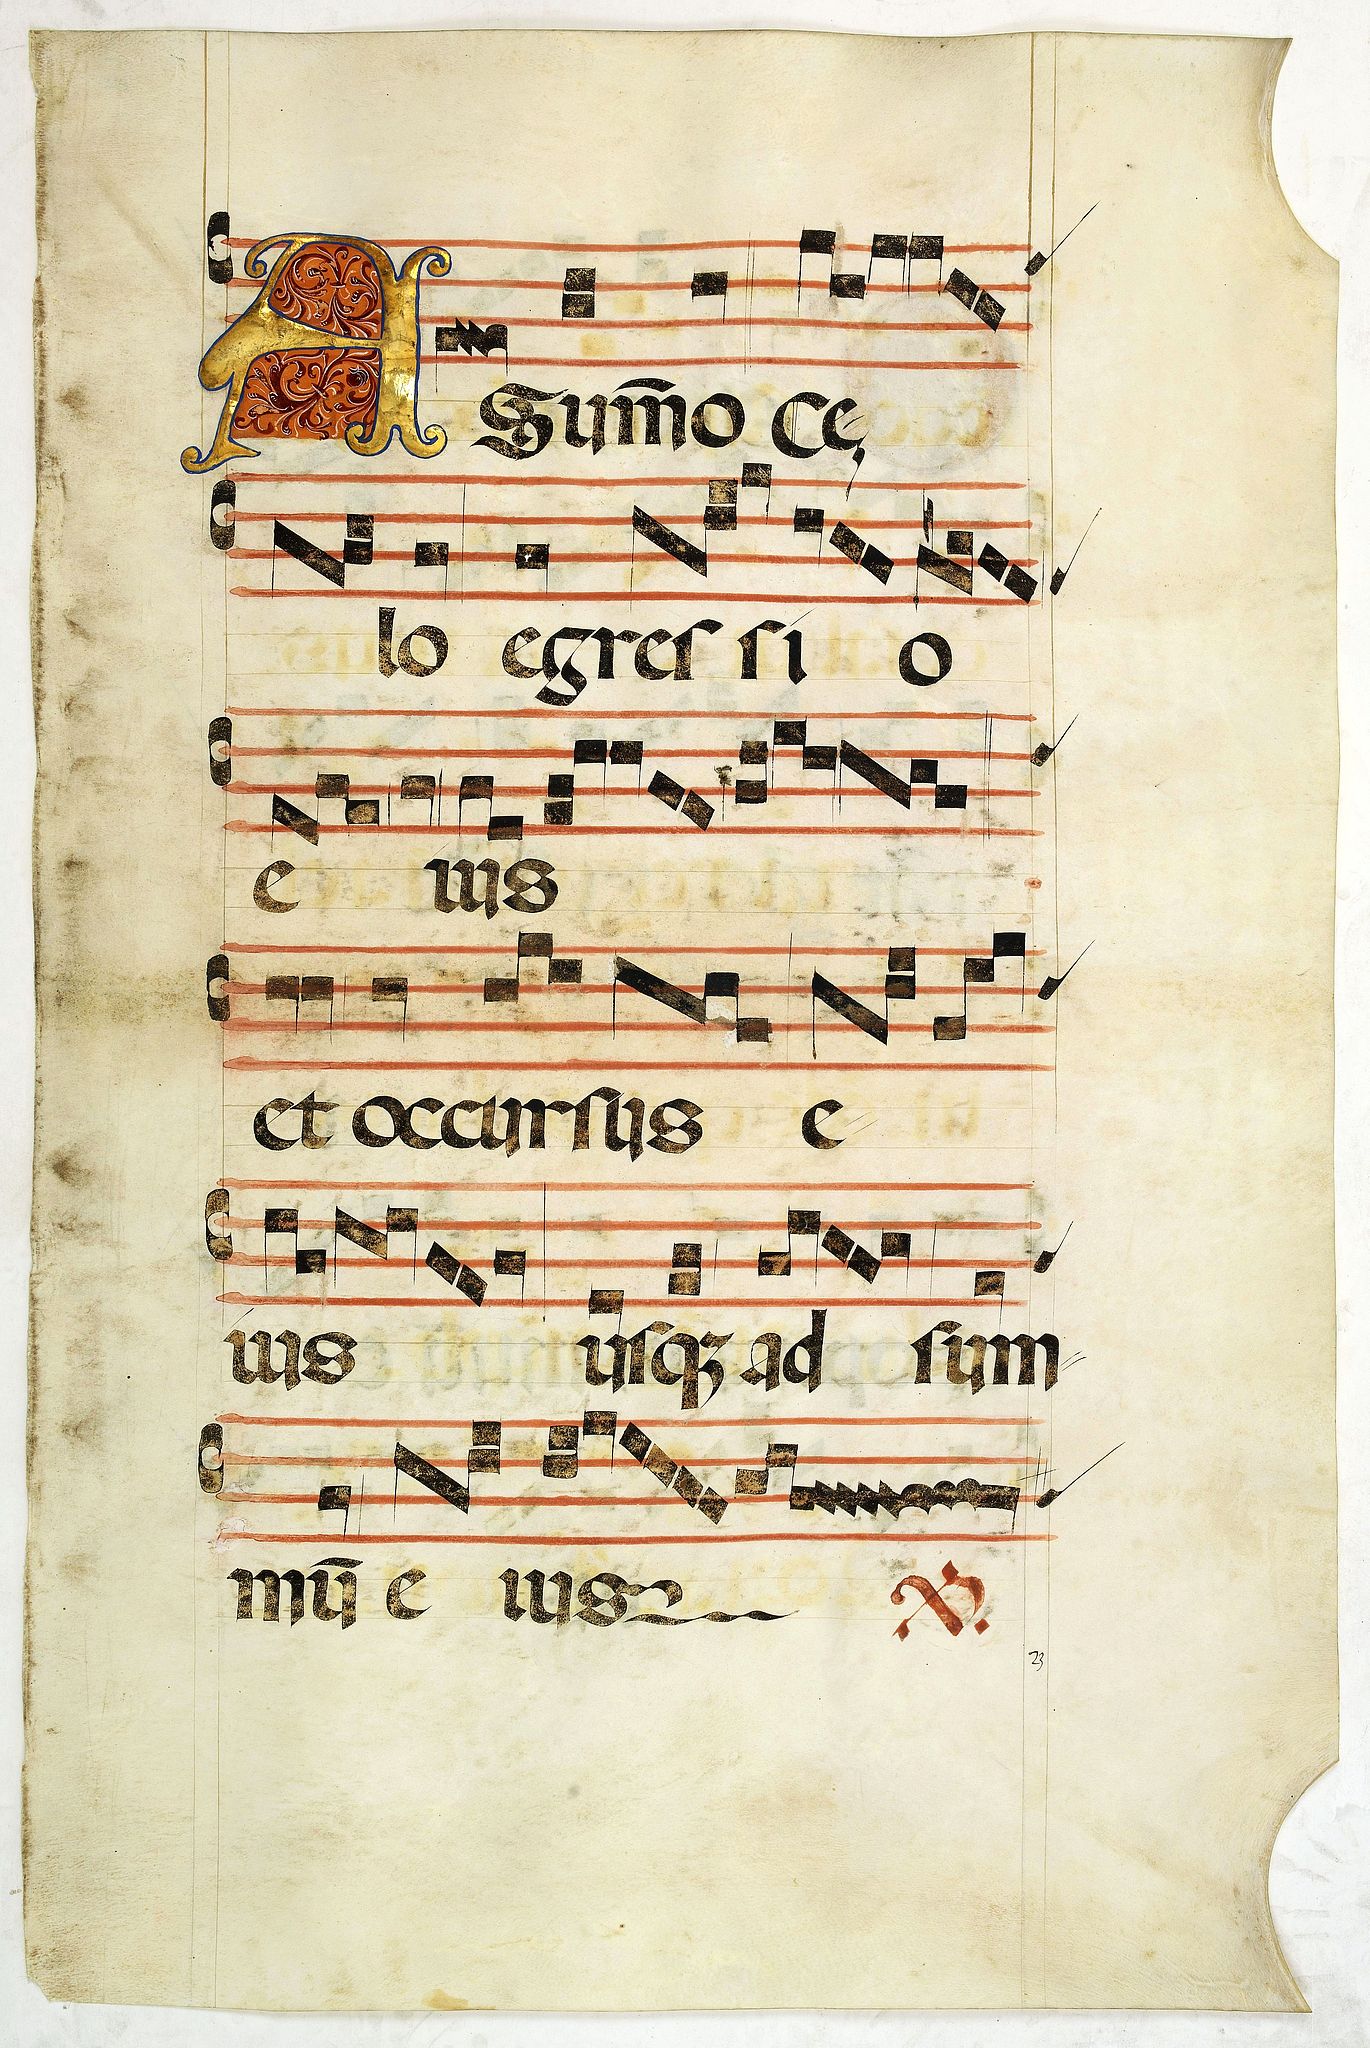 A Sum̄o cę
lo egres si o
e ius
et occursus e
ius usqꝫ ad sum
mū e ius
23